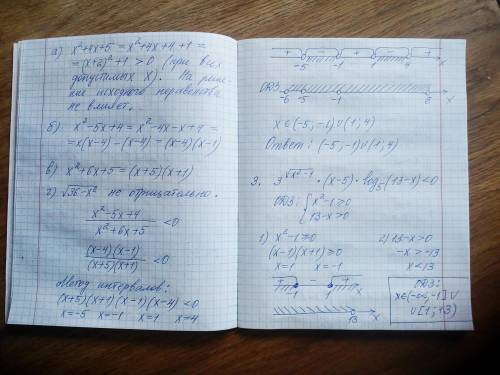 а) x²+4x+5 = x²+4x+4+1 =
= (x+2)²+1 > 0 (при всех
допустимых x). На реше-
ние исходного неравенства
не влияет.
б) x²-5x+4 = x²-4x-x+4 =
= x(x-4)-(x-4) = (x-4)(x-1)
в) x²+6x+5 = (x+5)(x+1)
г) √36-x² не отрицательно.
x²-5x+4
x²+6x+5 <0
(x-4)(x-1)
(x+5)(x+1) <0
Метод интервалов:
(x+5)(x+1)(x-1)(x-4) <0
x=-5 x=-1 x=1 x=4
+ - + - +
-5 -1 1 4 x
ОДЗ:
-6 -5 -1 x
x∈(-5;-1)∪(1;4)
Ответ: (-5;-1)∪(1;4)
3. 3^√x²-1 · (x-5) · log₅(13-x)<0
ОДЗ: { x²-1≥0
13-x>0
1) x²-1≥0 2) 13-x>0
(x-1)(x+1)≥0 -x>-13
x=1 x=-1 x<13
+ - +
-1 1 x
13 x
ОДЗ:
x∈(-∞;-1]∪
∪[1;13)